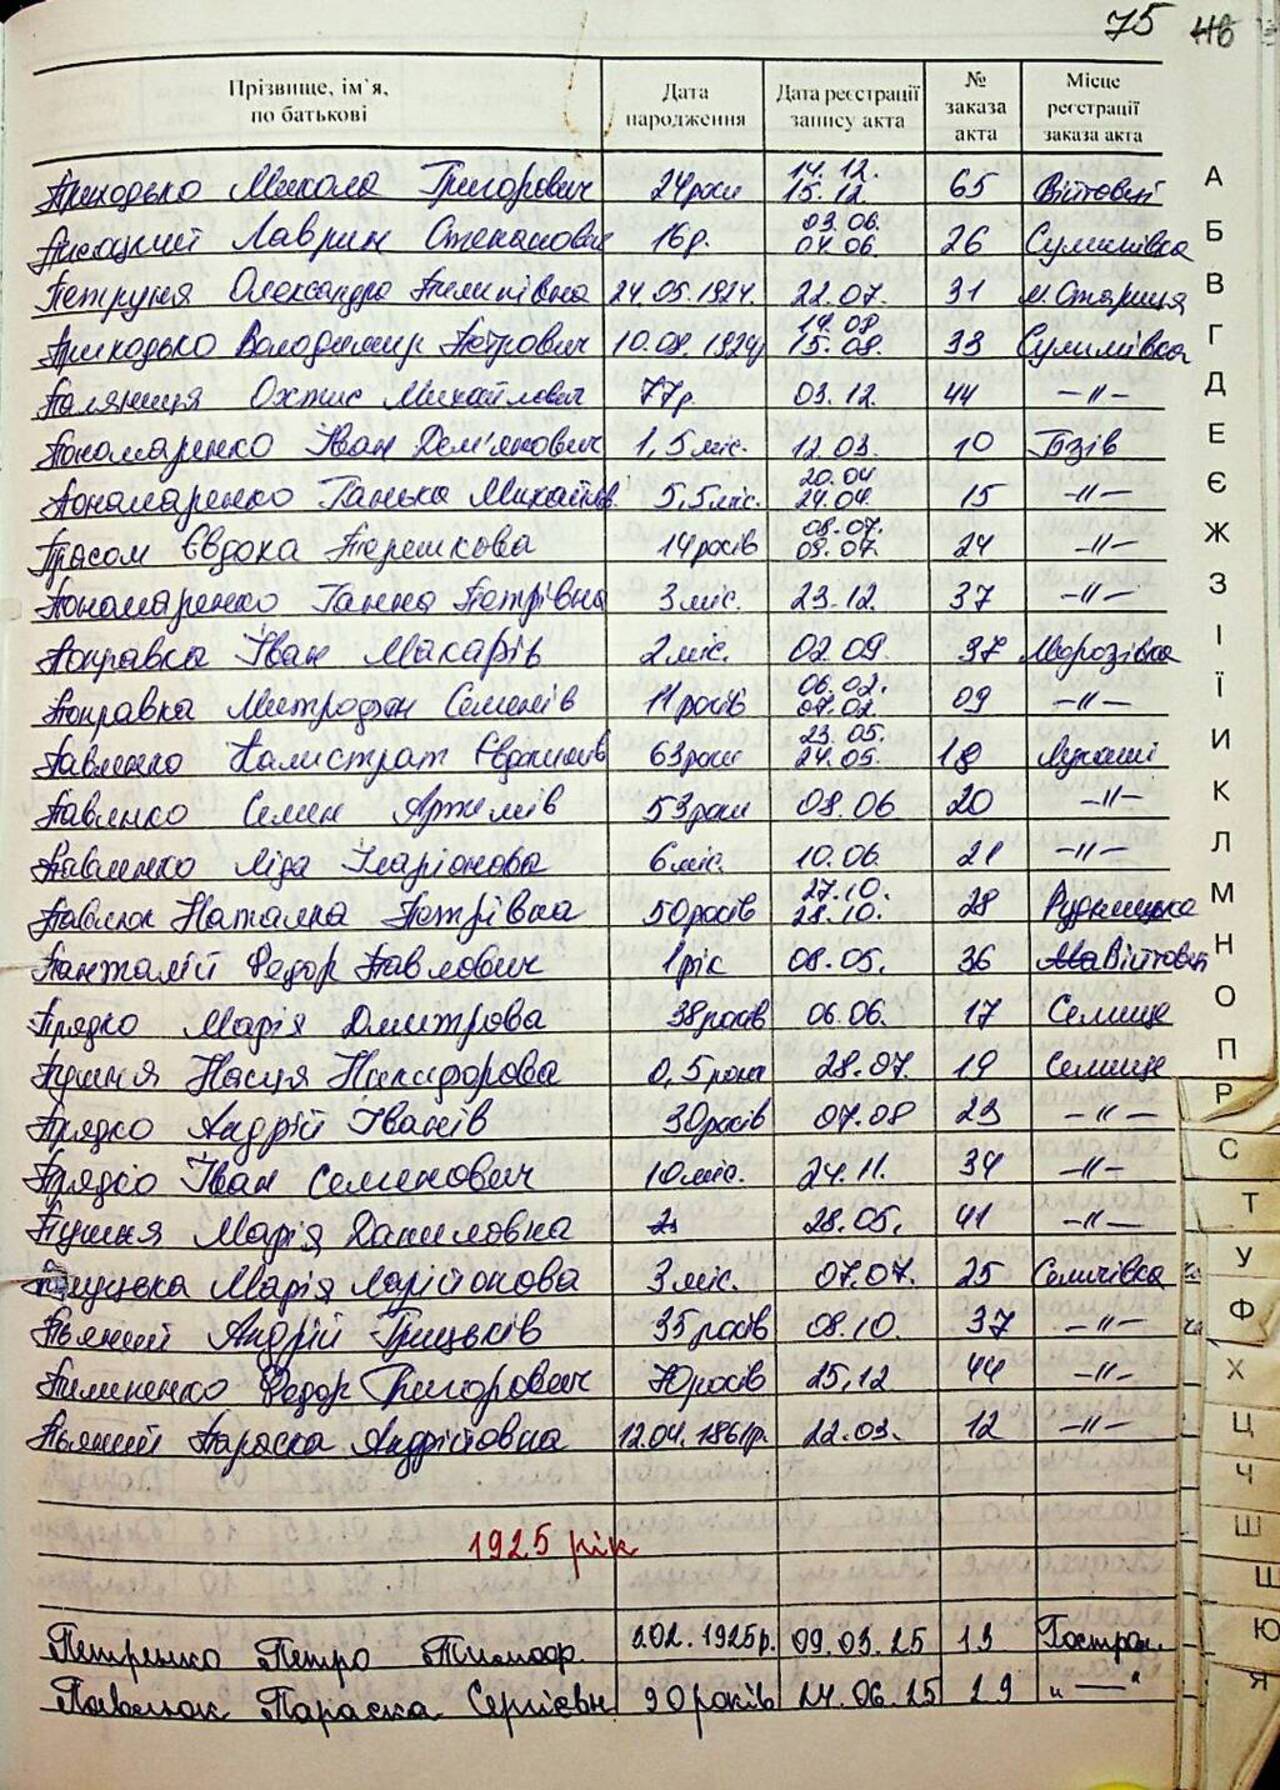 75 116
Прізвище, ім'я, по батькові | Дата народження | Дата реєстрації запису акта | № заказа акта | Місце реєстрації заказа акта
Приходько Микола Григорович 24 роки 14.12. 15.12. 65 Війтовці
Лаврин Степанович 16 р. 03.06. 04.06. 26 Сулимівка
Петруня Олександра Пилипівна 24.05.1924. 22.07. 31 м. Стариця
Приходько Володимир Петрович 10.08.1924р 14.08 15.08. 33 Сулимівка
Паляниця Охтис Михайлович 77 р. 03.12. 44 —"—
Пономаренко Іван Дем'янович 1,5 міс. 12.03. 10 Гізів
Пономаренко Ганька Михайлов. 5,5 міс. 20.04 24.04. 15 —"—
Прасом Євдока Терешкова 14 років 08.07. 09.07. 24 —"—
Пономаренко Ганна Петрівна 3 міс. 23.12. 37 —"—
Поправка Іван Макарів 2 міс. 02.09. 37 Морозівка
Поправка Митрофан Семенів 11 років 06.02. 07.02. 09 —"—
Павленко Калистрат Євдокимів 63 роки 23.05. 24.05. 18 Лукаші
Павленко Семен Артемів 53 роки 08.06 20 —"—
Павленко Ліда Іларіонова 6 міс. 10.06. 21 —"—
Павлюк Наталка Петрівна 50 років 27.10. 28.10. 28 Рудницька
Панталій Федор Павлович 1 рік 08.05. 36 Війтовці
Прядко Марія Дмитрова 38 років 06.06. 17 Селище
Пушня Настя Никифорова 0,5 рока 28.07. 19 Селище
Прядко Андрій Іванів 30 років 07.08 23 —"—
Прядко Іван Семенович 10 міс. 24.11. 34 —"—
Пушня Марія Даниловна 28.05. 41 —"—
Марія Ларійонова 3 міс. 07.07. 25 Семичівка
Пьяний Андрій Грицьків 35 років 08.10. 37 —"—
Пилипенко Федор Григорович 70 років 25.12 44 —"—
Пьяний Параска Андрійовна 12.04.1861р. 22.03. 12 —"—
1925 рік
Петренко Петро Тимоф. 02.1925р. 09.03.25 13 Гостром.
Павлюк Параска Сергієвн 90 років 24.06.25 29 "—"
А
Б
В
Г
Д
Е
Є
Ж
З
І
Ї
И
К
Л
М
Н
О
П
Р
С
Т
У
Ф
Х
Ц
Ч
Ш
Щ
Ю
Я